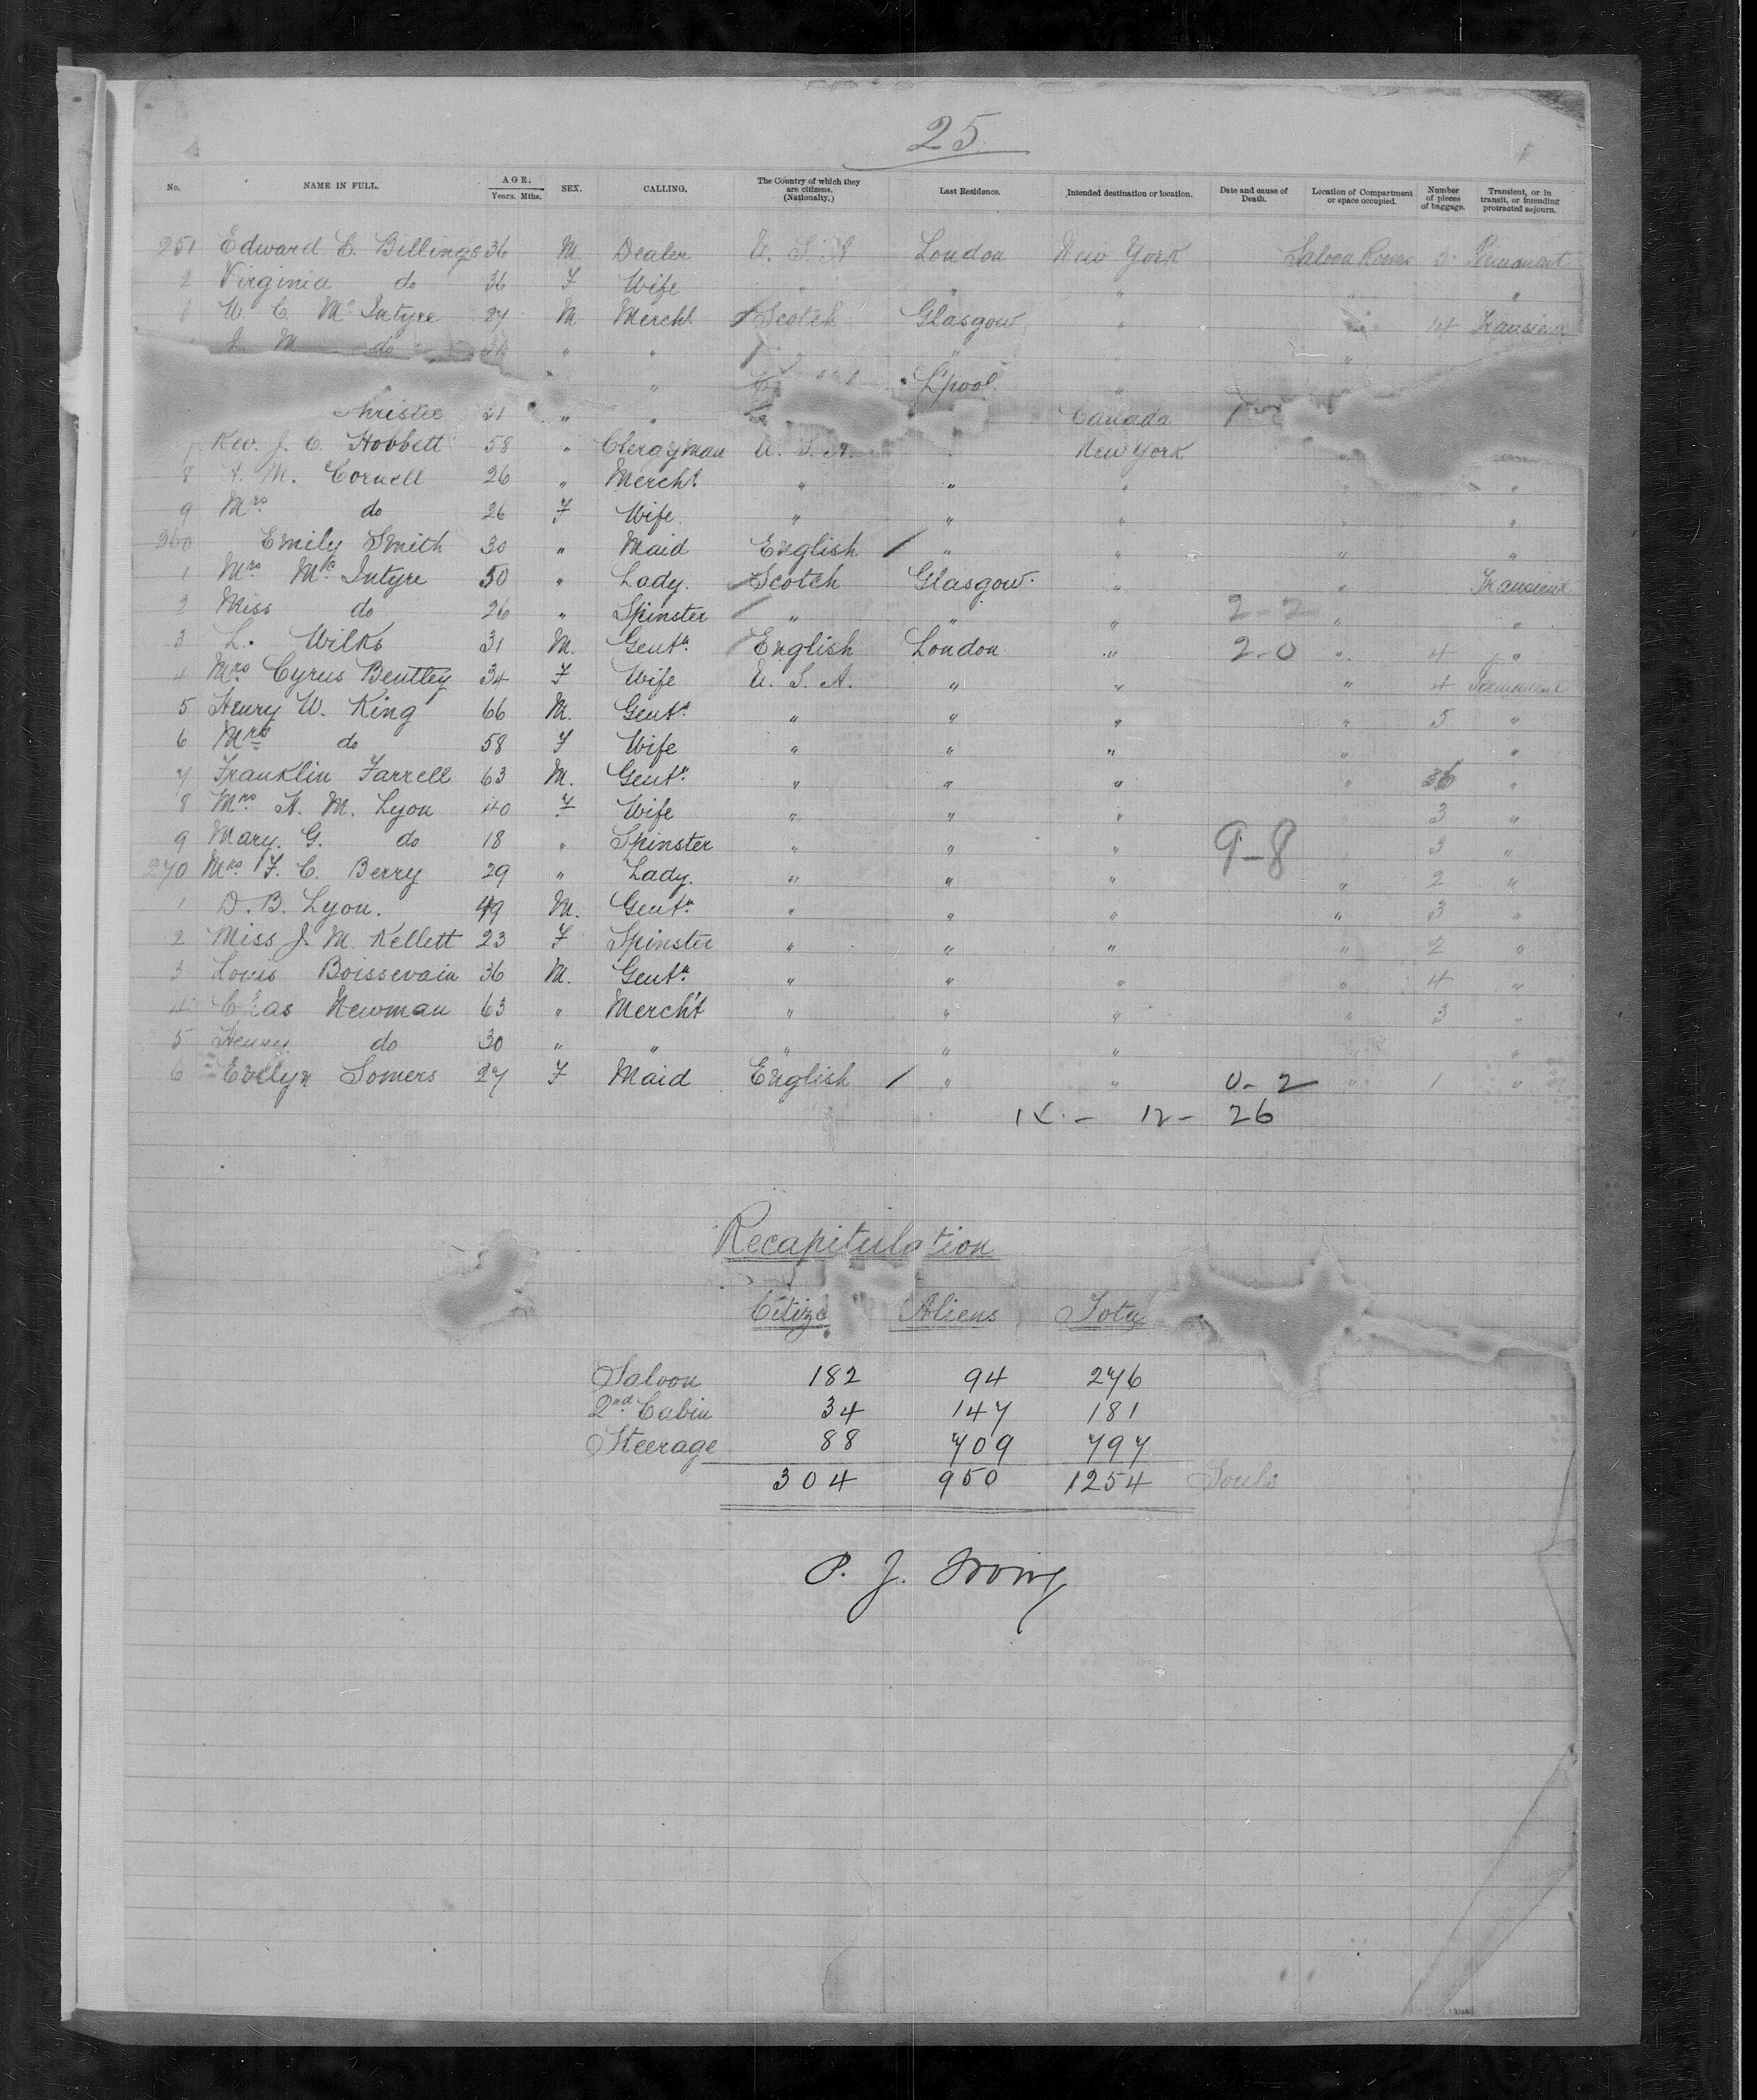 25.
No. NAME IN FULL. AGE. Years. Mths. SEX. CALLING. The Country of which they are citizens. (Nationalty.) Last Residence. Intended destination or location. Date and cause of Death. Location of Compartment or space occupied. Number of pieces of baggage. Transient, or in transit, or intending protracted sojourn.
251 Edward E. Billings 36 M. Dealer U. S. A London New York Saloon Rooms 3 Permanent
2 Virginia do 36 F Wife " " " " "
W. C. Mc Intyre 27 M Mercht. Scotch Glasgow " " 14 Transient
J. M do " " " "
" L'pool. "
Christie 21 " " Canada
Rev. J. C. Hobbett 58 " Clergyman U. S. A. " New York "
8 M. Cornell 26 " Mercht. " " " " "
9 Mrs do 26 F Wife. " " " " "
260 Emily Smith 30 " Maid English / " " " "
1 Mrs Mc Intyre 50 " Lady. Scotch Glasgow. " " Transient
2 Miss do 26 " Spinster " " " 2-2 " "
3 L. Wilks 31 M. Gentn. English London " 2-0 " 4 "
4 Mrs Cyrus Bentley 34 F Wife U. S. A. " " " 4 Permanent
5 Henry W. King 66 M. Gentn. " " " " 5 "
6 Mrs do 58 F Wife " " " " "
7 Franklin Farrell 63 M. Gentn. " " " " 36 "
8 Mrs A. M. Lyon 40 F Wife " " " " 3 "
9 Mary. G. do 18 " Spinster " " " 9-8 " 3 "
270 Mrs F. C. Berry 29 " Lady. " " " " 2 "
1 D. B. Lyon. 49 M. Gentn. " " " " 3 "
2 Miss J. M. Kellett 23 F Spinster " " " " 2 "
3 Louis Boissevain 36 M. Gentn. " " " " 4 "
4 Chas Newman 63 " Merch't " " " " 3 "
5 Henry do 30 " " " " " "
6 Evelyn Somers 27 F Maid English / " " 0-2 " 1 "
12- 26
Recapitulation
Citize Aliens Total
Saloon 182 94 276
2nd Cabin 34 147 181
Steerage 88 709 797
304 950 1254 Souls
P. J. Irving